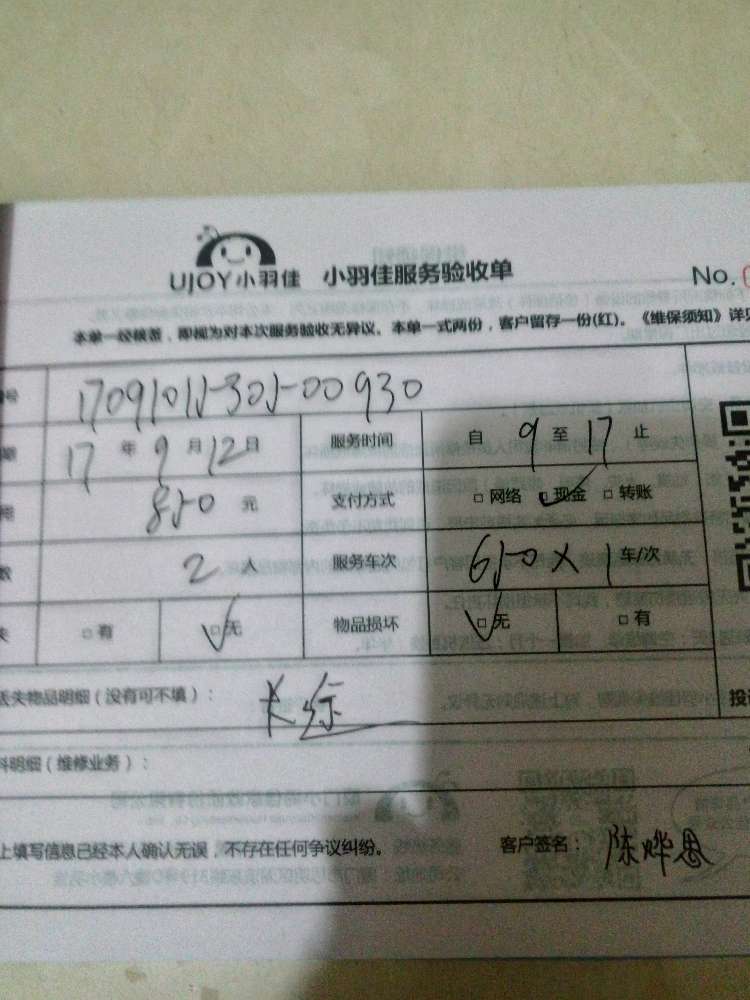 UJOY小羽佳 小羽佳服务验收单 No.
本单一经核签，即视为对本次服务验收无异议。本单一式两份，客户留存一份(红)。《维保须知》详见
号 17091015-305-00930
期 17年9月12日 服务时间 自9至17止
用 850元 支付方式 □网络 □现金 □转账
数 2人 服务车次 650×1车/次
失 □有 □无 物品损坏 □无 □有
丢失物品明细（没有可不填）：
投诉
料明细（维修业务）：
上填写信息已经本人确认无误，不存在任何争议纠纷。 客户签名：陈烨恩